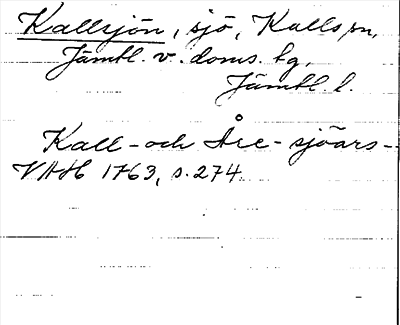 Kallsjön, sjö, Kalls sn,
Jämtl. v. doms. tg,
Jämtl. l.
Kall- och Åre- sjöars-
VAH 1763, s. 274.